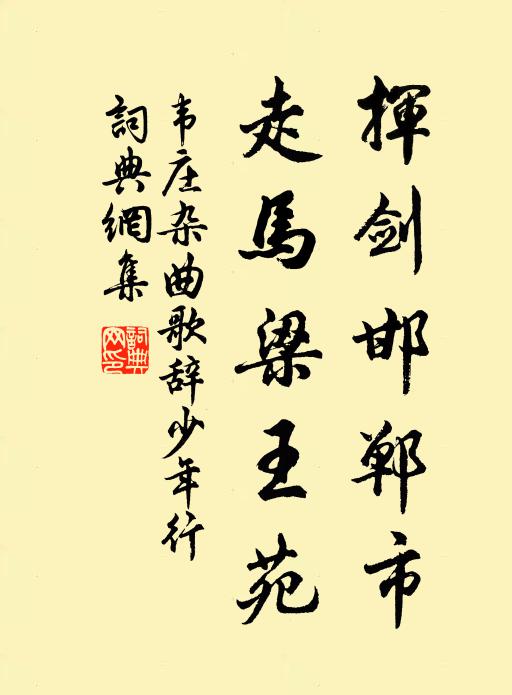 揮劍邯鄲市
走馬梁王苑
韦庄杂曲歌辞少年行
詞典網集
詞典
网印